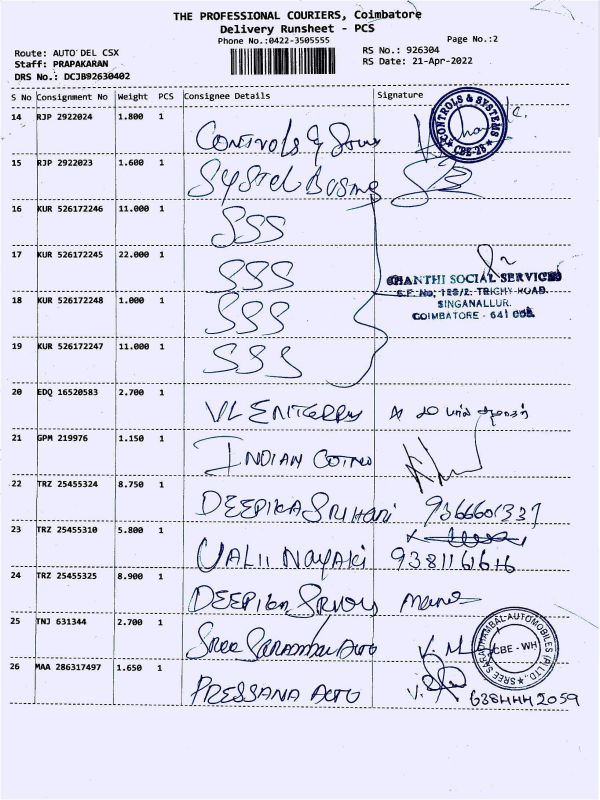 THE PROFESSIONAL COURIERS, Coimbatore
Delivery Runsheet - PCS
Phone No.:0422-3505555
Page No.:2
Route: AUTO DEL CSX
Staff: PRAPAKARAN
DRS No.: DCJB92630402
RS No.: 926304
RS Date: 21-Apr-2022
S No Consignment No Weight PCS Consignee Details Signature
14 RJP 2922024 1.800 1 Controls &
CONTROLS & SYSTEMS CBE-25
15 RJP 2922023 1.600 1
16 KUR 526172246 11.000 1 SSS
17 KUR 526172245 22.000 1 SSS
SHANTHI SOCIAL SERVICES
S.F. No; 128/2. TRICHY ROAD.
SINGANALLUR.
COIMBATORE - 641 005.
18 KUR 526172248 1.000 1 SSS
19 KUR 526172247 11.000 1 SSS
20 EDQ 16520583 2.700 1 VL
21 GPM 219976 1.150 1 INDIAN
22 TRZ 25455324 8.750 1 DEEPIKA SRIHARI 9366601337
23 TRZ 25455310 5.800 1 VALII NAYAKI
24 TRZ 25455325 8.900 1
25 TNJ 631344 2.700 1 Sree Auto
SREE SARADHAMBAL AUTOMOBILES (P) LTD., CBE - WH
26 MAA 286317497 1.650 1 PRESSANA AUTO